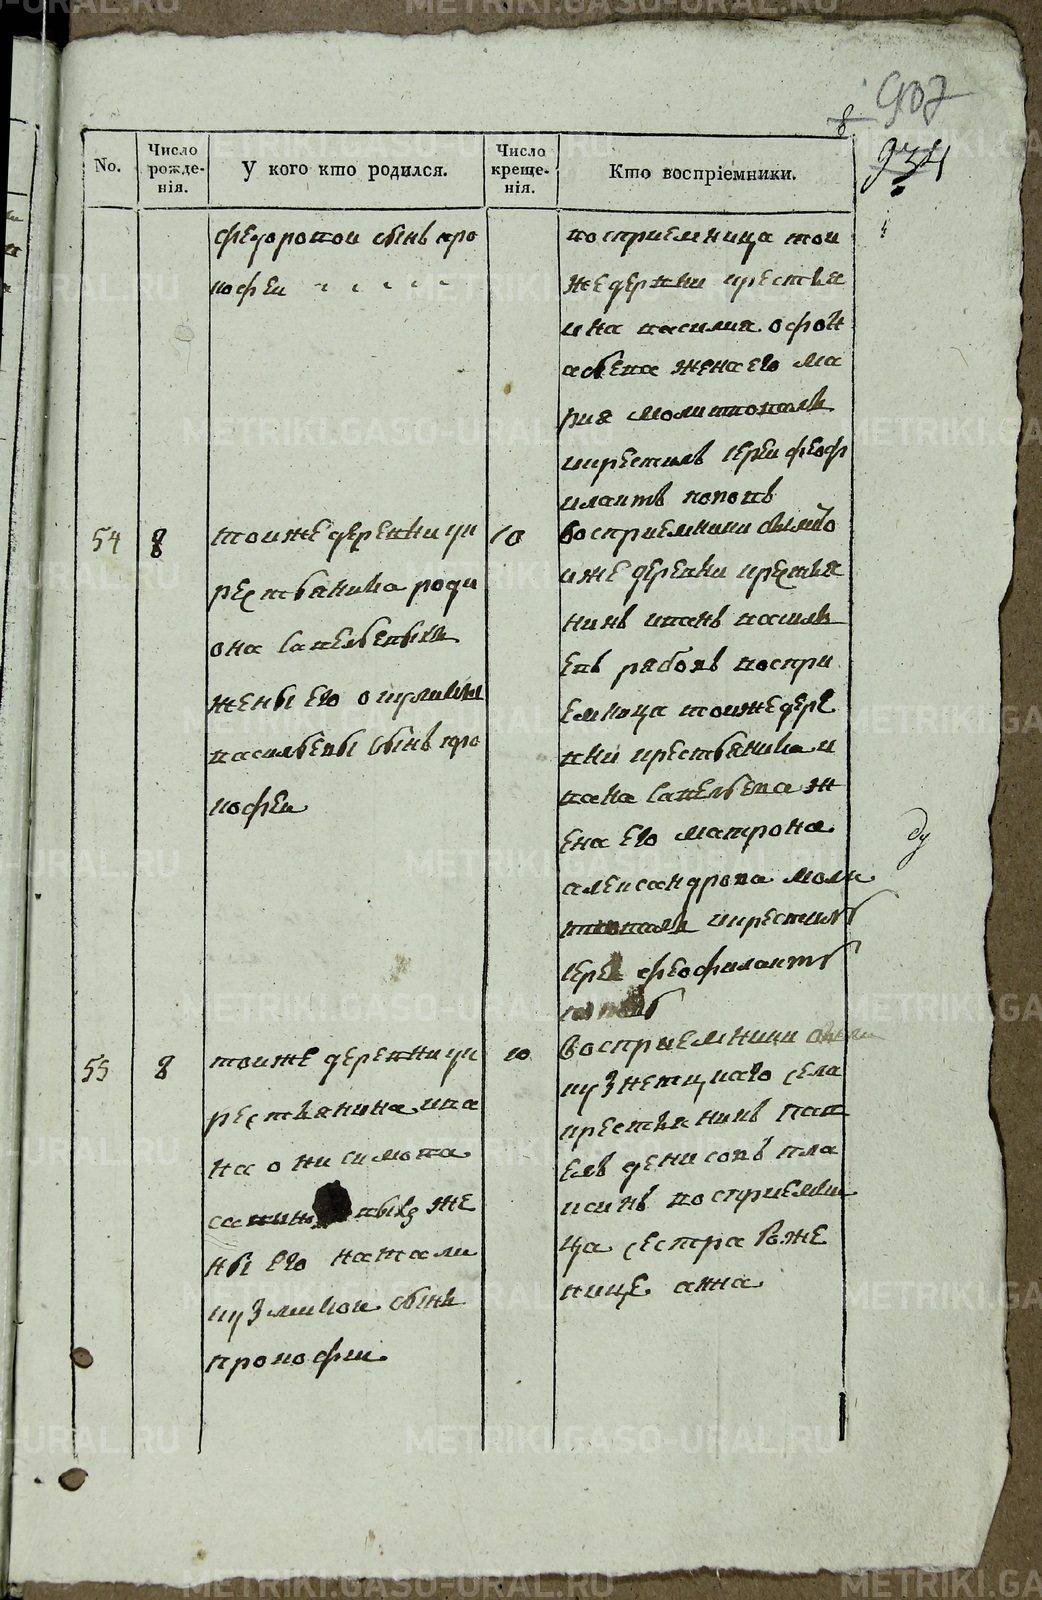 907
8
934
No.
Число рожде-нія.
У кого кто родился.
Число креще-нія.
Кто воспріемники.
федоровой сынъ про
кофеи
восприемница той
же деревни крестья
нина василия офон
асьева жена его ма
рия молитвовалъ
икрестилъ іереи феоф
илактъ поповъ
54
8
тоиже деревни кр
рестьянина роди
она савельевыхъ
жены его окулины
васильевы сынъ про
кофеи
10
восприемники былито
иже деревни крестья
нинъ иванъ василь
евъ рябовъ воспри
емница тоиже дере
вни крестьянина и
вана савельева ж
ена его матрона
александрова моли
твовалъ икрестилъ
іереи феофилактъ
поповъ
55
8
тоиже деревни к
рестьянина ива
на онисимова
же
ны его натали
кузмикои сынъ
прокофеи
10
восприемники были
кузнецкаго села
крестьянинъ пав
елъ денисовъ
восприемни
ца сестра роже
нице анна
METRIKI.GASO-URAL.RU